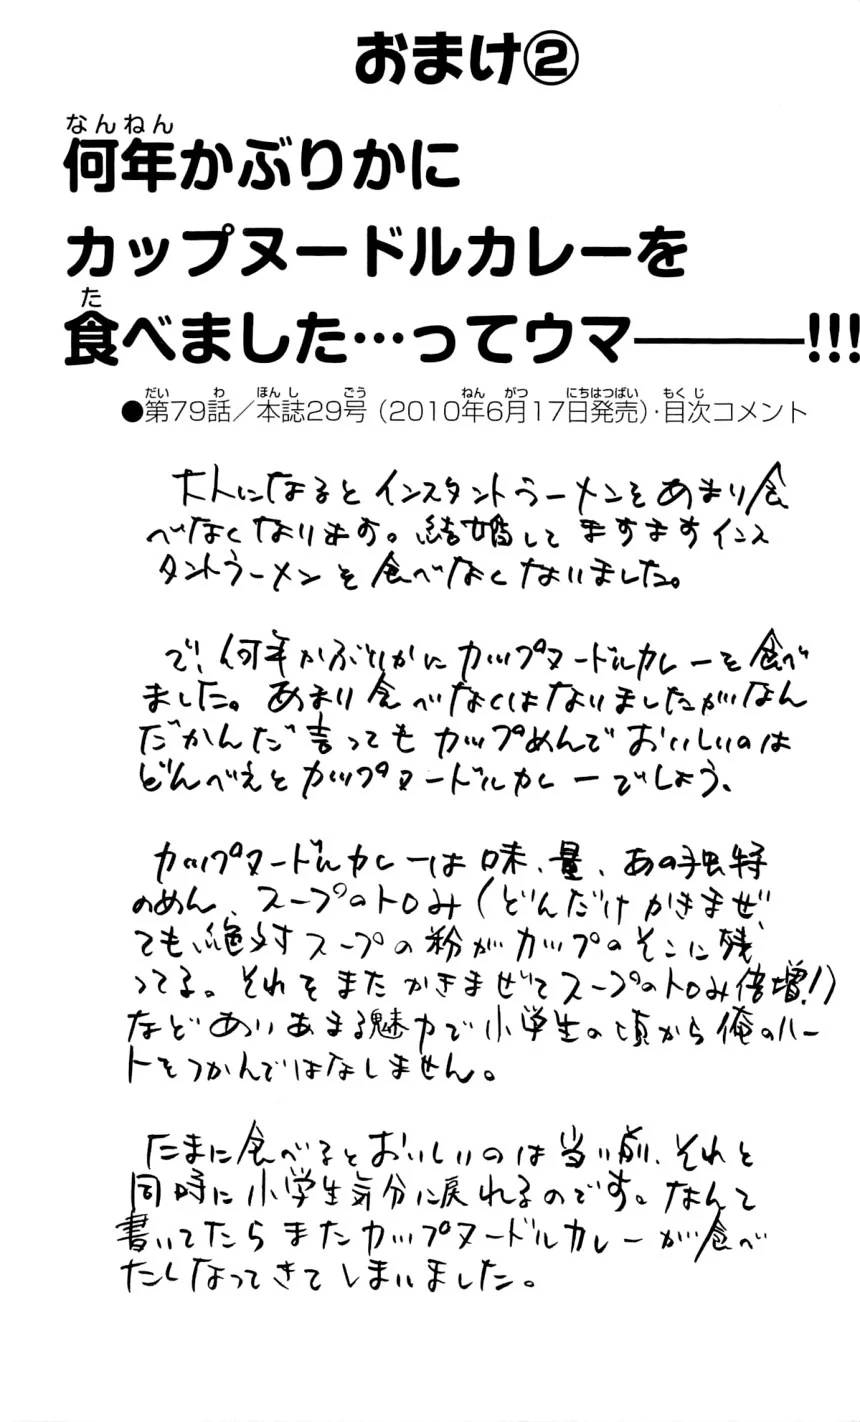 おまけ②
何年かぶりかに
カップヌードルカレーを
食べました…ってウマ———!!!
●第79話／本誌29号（2010年6月17日発売）・目次コメント
大人になるとインスタントラーメンをあまり食
べなくなります。結婚してますますインス
タントラーメンを食べなくなりました。
で、何年かぶりかにカップヌードルカレーを食べ
ました。あまり食べなくはなりましたがなん
だかんだ言ってもカップめんでおいしいのは
どんべえとカップヌードルカレーでしょう。
カップヌードルカレーは味、量、あの独特
のめん、スープのトロみ（どんだけかきまぜ
ても絶対スープの粉がカップのそこに残
ってる。それをまたかきまぜてスープのトロみ倍増！）
などありあまる魅力で小学生の頃から俺のハー
トをつかんではなしません。
たまに食べるとおいしいのは当り前、それと
同時に小学生気分に戻れるのです。なんて
書いてたらまたカップヌードルカレーが食べ
たくなってきてしまいました。